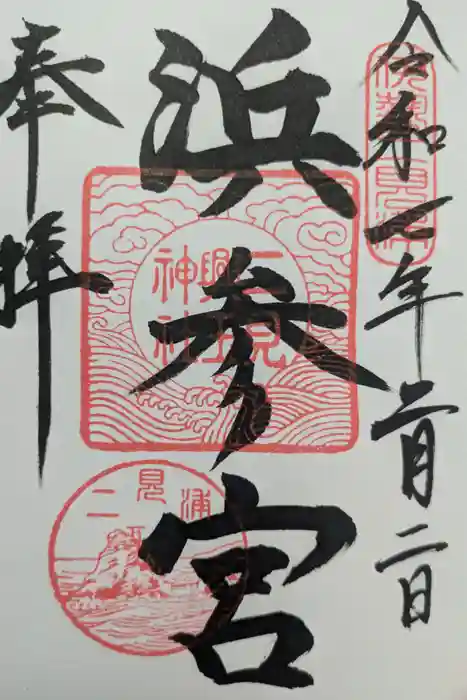 令和二年二月二日
伊勢二見浦
浜参宮
二見
興玉
神社
二見浦
奉拝